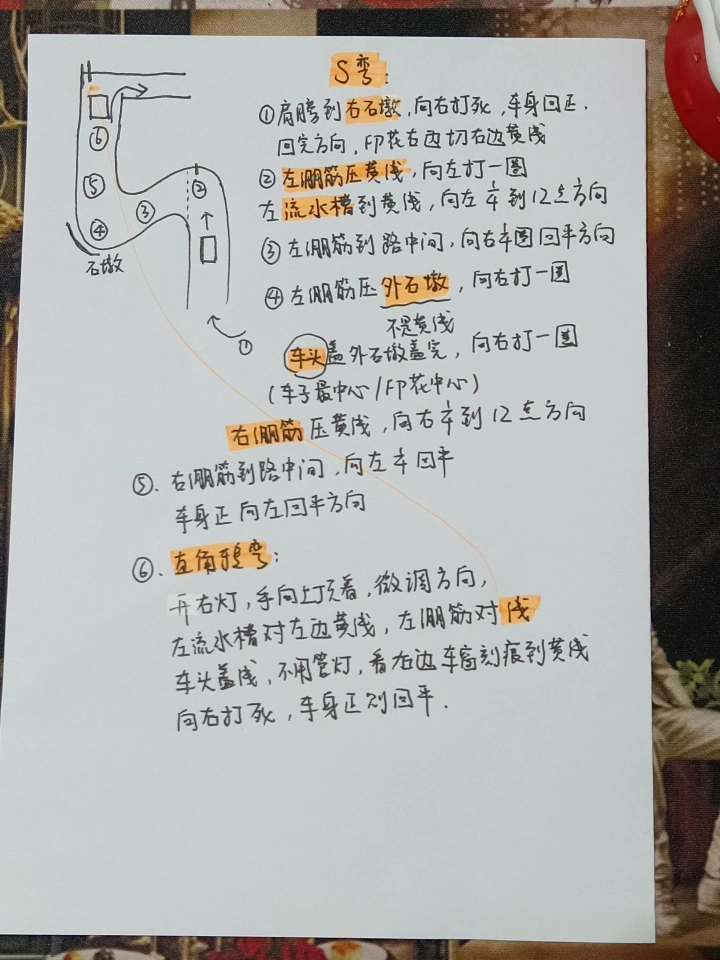 S弯:
①肩膀到右石墩,向右打死,车身回正.
回完方向,印花右边切右边黄线
②左雨筋压黄线,向左打一圈
左流水槽到黄线,向左半到12点方向
③左雨筋到路中间,向右半圈回平方向
④左雨筋压外石墩,向右打一圈
不是黄线
车头盖外石墩盖完,向右打一圈
(车子最中心/印花中心)
右雨筋压黄线,向右半到12点方向
⑤.右雨筋到路中间,向左半回平
车身正向左回平方向
⑥.直角转弯:
开右灯,手向上顶着,微调方向,
左流水槽对左边黄线,左雨筋对线
车头盖线,不用管灯,看右边车窗刻痕到黄线
向右打死,车身正则回平.
⑥
⑤
④
③
②
①
石墩